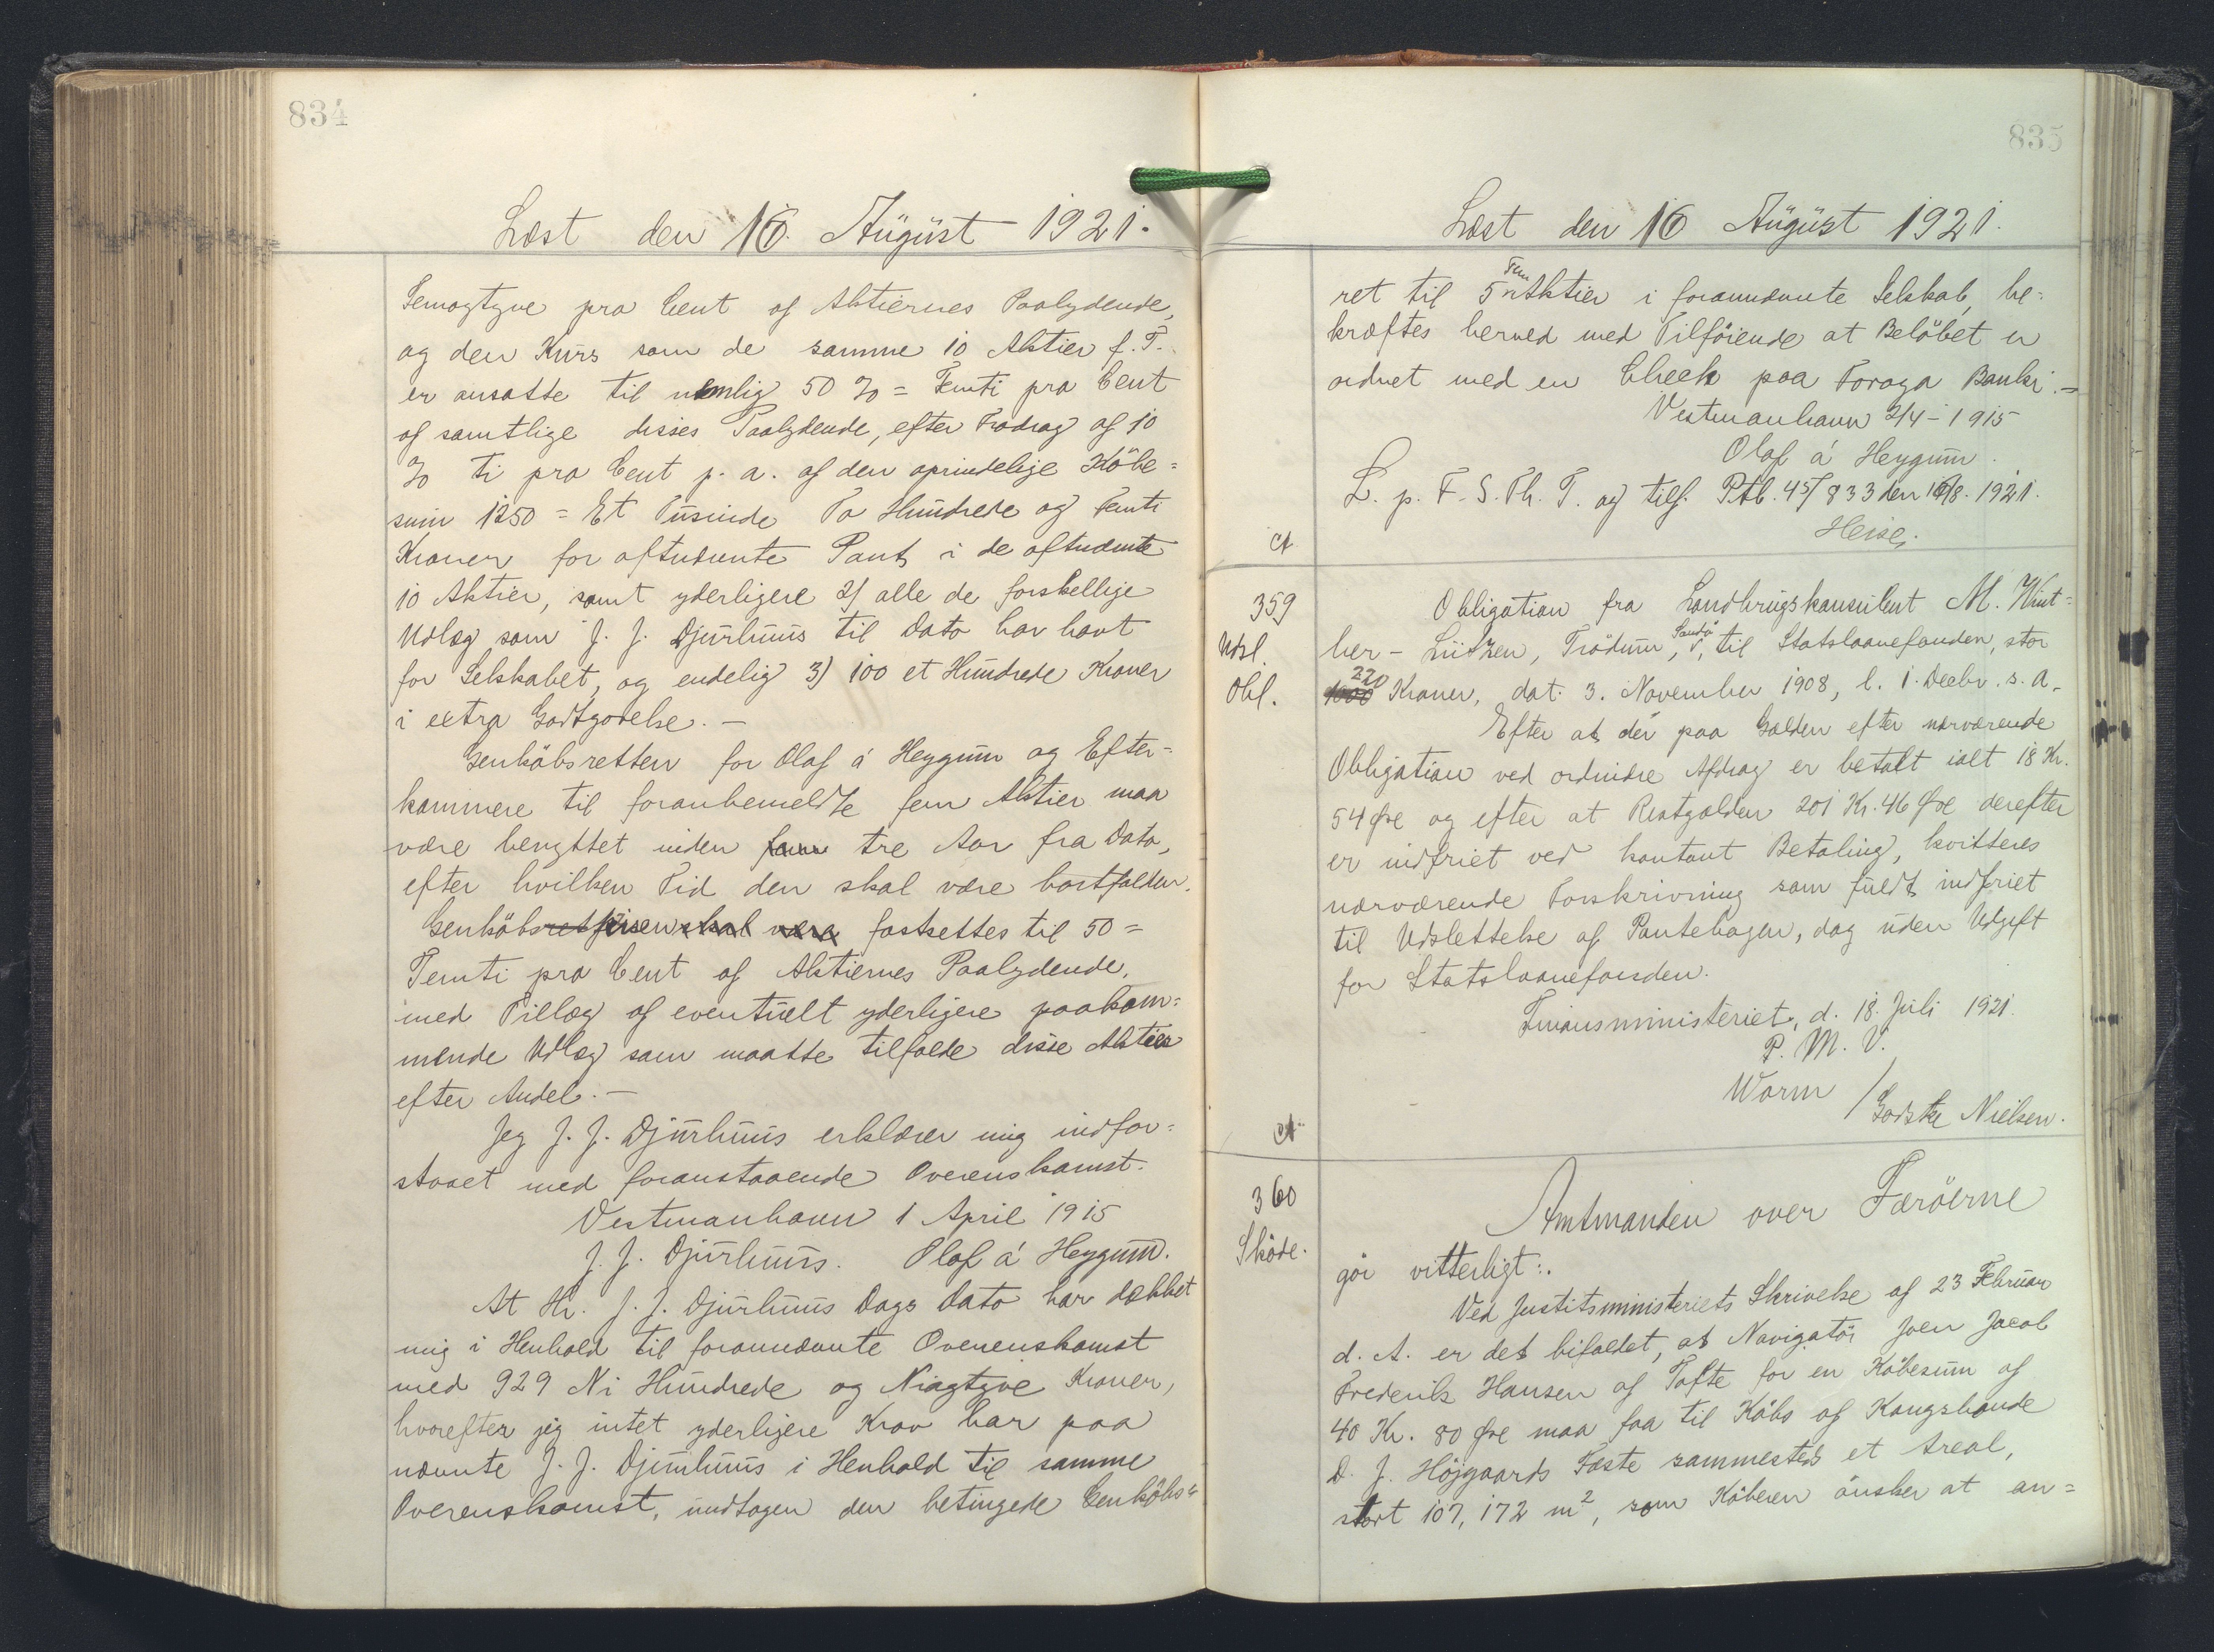 834
Læst den 16. August 1921.
Femogtyve pro Cent af Aktiernes Paalydende,
og den Kurs som de samme 10 Aktier f. T.
er ansatte til nemlig 50 % = Femti pro Cent
af samtlige disses Paalydende, efter Fradrag af 10
% ti pro Cent p. a. af den oprindelige Købe=
sum 1250 = Et Tusinde To Hundrede og Femti
Kroner for oftnævnte Pant i de oftnævnte
10 Aktier, samt yderligere 2/ alle de forskellige
Udlæg som J. J. Djurhuus til Dato har havt
for Selskabet, og endelig 3) 100 et Hundrede Kroner
i extra Godtgörelse. —
Genköbsretten for Olaf á Heygum og Efter=
kommere til foranbemeldte fem Aktier maa
være benyttet inden fem tre Aar fra Dato,
efter hvilken Tid den skal være bortfalden.
Genköbsretprisen skal være fastsettes til 50 =
Femti pro Cent af Aktiernes Paalydende,
med Tillæg af eventuelt yderligere paakom=
mende Udlæg som maatte tilfalde disse Aktier
efter Andel. —
Jeg J. J. Djurhuus erklærer mig indfor=
staaet med foranstaaende Overenskomst.
Vestmanhavn 1 April 1915
J. J. Djurhuus. Olaf á Heygum.
At Hr. J. J. Djurhuus Dags Dato har dækket
mig i Henhold til forannævnte Overenskomst
med 929 Ni Hundrede og Niogtyve Kroner,
hvorefter jeg intet yderligere Krav har paa
nævnte J. J. Djurhuus i Henhold til samme
Overenskomst, undtagen den betingede Genköbs=
835
Læst den 16 August 1921.
ret til 5 Fem Aktier i forannævnte Selskab, be=
kræftes herved med Tilföiende at Belöbet er
ordnet med en Check paa Föroya Banki. —
Vestmanhavn 2/4 - 1915
Olaf á Heygum.
L. p. F. S. Th. T. og tilf. Ptb. 45/833 den 16/8. 1921.
Heise.
Ct
359
Udsl.
Obl.
Obligation fra Landbrugskonsulent M. Wint=
her - Lützen, Trödum, Sandö, til Statslaanefonden, stor
1000 220 Kroner, dat. 3. November 1908, l. 1. Decbr. s. A.
Efter at der paa Gælden efter nærværende
Obligation ved ordinære Afdrag er betalt ialt 18 Kr.
54 Øre og efter at Restgælden 201 Kr. 46 Øre derefter
er indfriet ved kontant Betaling, kvitteres
nærværende Forskrivning som fuldt indfriet
til Udslettelse af Pantebogen, dog uden Udgift
for Statslaanefonden.
Finansministeriet, d. 18. Juli 1921.
P. M. V.
Worm / Godske Nielsen.
Ct
360
Sköde.
Amtmanden over Færöerne
gör vitterligt:.
Ved Justitsministeriets Skrivelse af 23 Februar
d. A. er det bifaldet, at Navigatör Joen Jacob
Frederik Hansen af Tofte for en Köbesum af
40 Kr. 80 Øre maa faa til Köbs af Kongsbonde
D. J. Höjgaards Fæste sammesteds et Areal,
stort 107,172 m², som Köberen önsker at an=